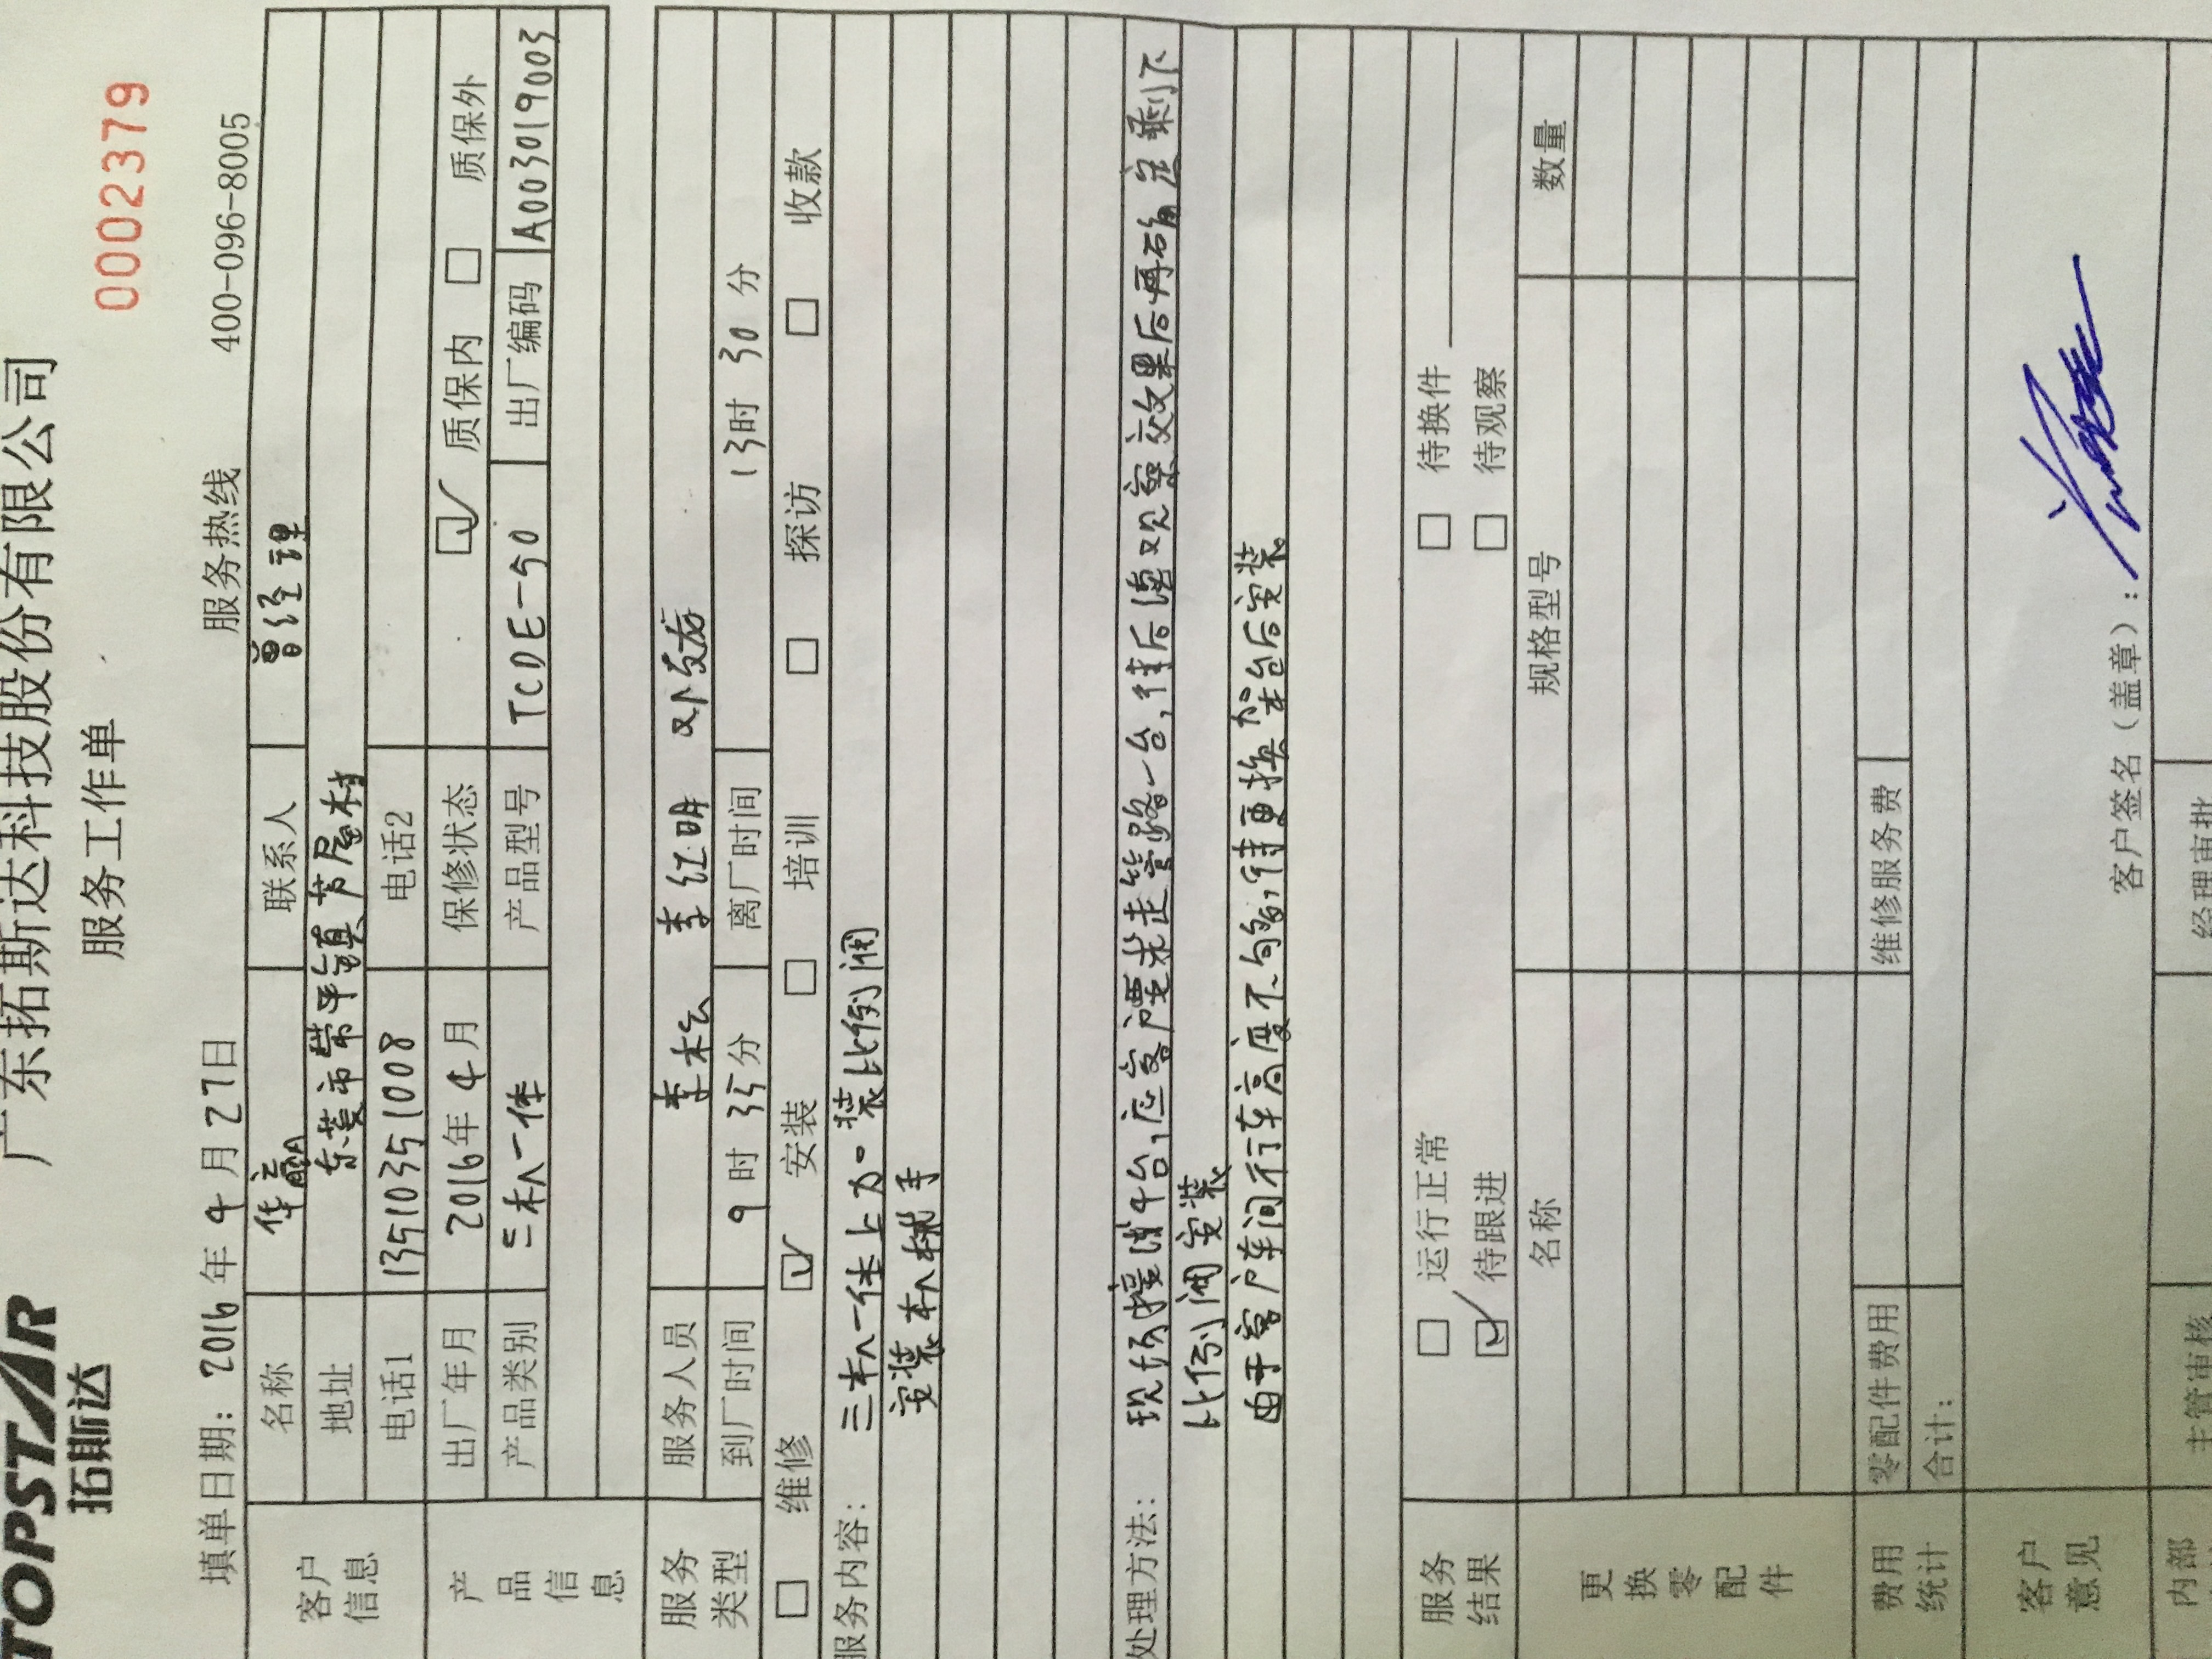 TOPSTAR
拓斯达
广东拓斯达科技股份有限公司
服务工作单
0002379
填单日期: 2016 年 4 月 27 日 服务热线 400-096-8005
客户信息
名称 华赢 联系人 曾经理
地址 东莞市常平镇芦屋村
电话1 13510351008 电话2
产品信息
出厂年月 2016年4月 保修状态 质保内 质保外
产品类别 三机一体 产品型号 TCDE-50 出厂编码 A003019003
服务类型
服务人员 李松 李红明 邓发龙
到厂时间 9时35分 离厂时间 13时30分
维修 安装 培训 探访 收款
服务内容: 三机一体上加装比例阀
安装机械手
处理方法: 台,应客户要求走管路一台,待后续观察效果后再确定剩下
比例阀安装
由于客户车间行车高度不够,待更换 后安装。
服务结果
运行正常 待换件
待跟进 待观察
更换零配件
名称 规格型号 数量
费用统计
零配件费用 维修服务费
合计:
客户意见
客户签名（盖章）:
内部
主管审核 经理审批